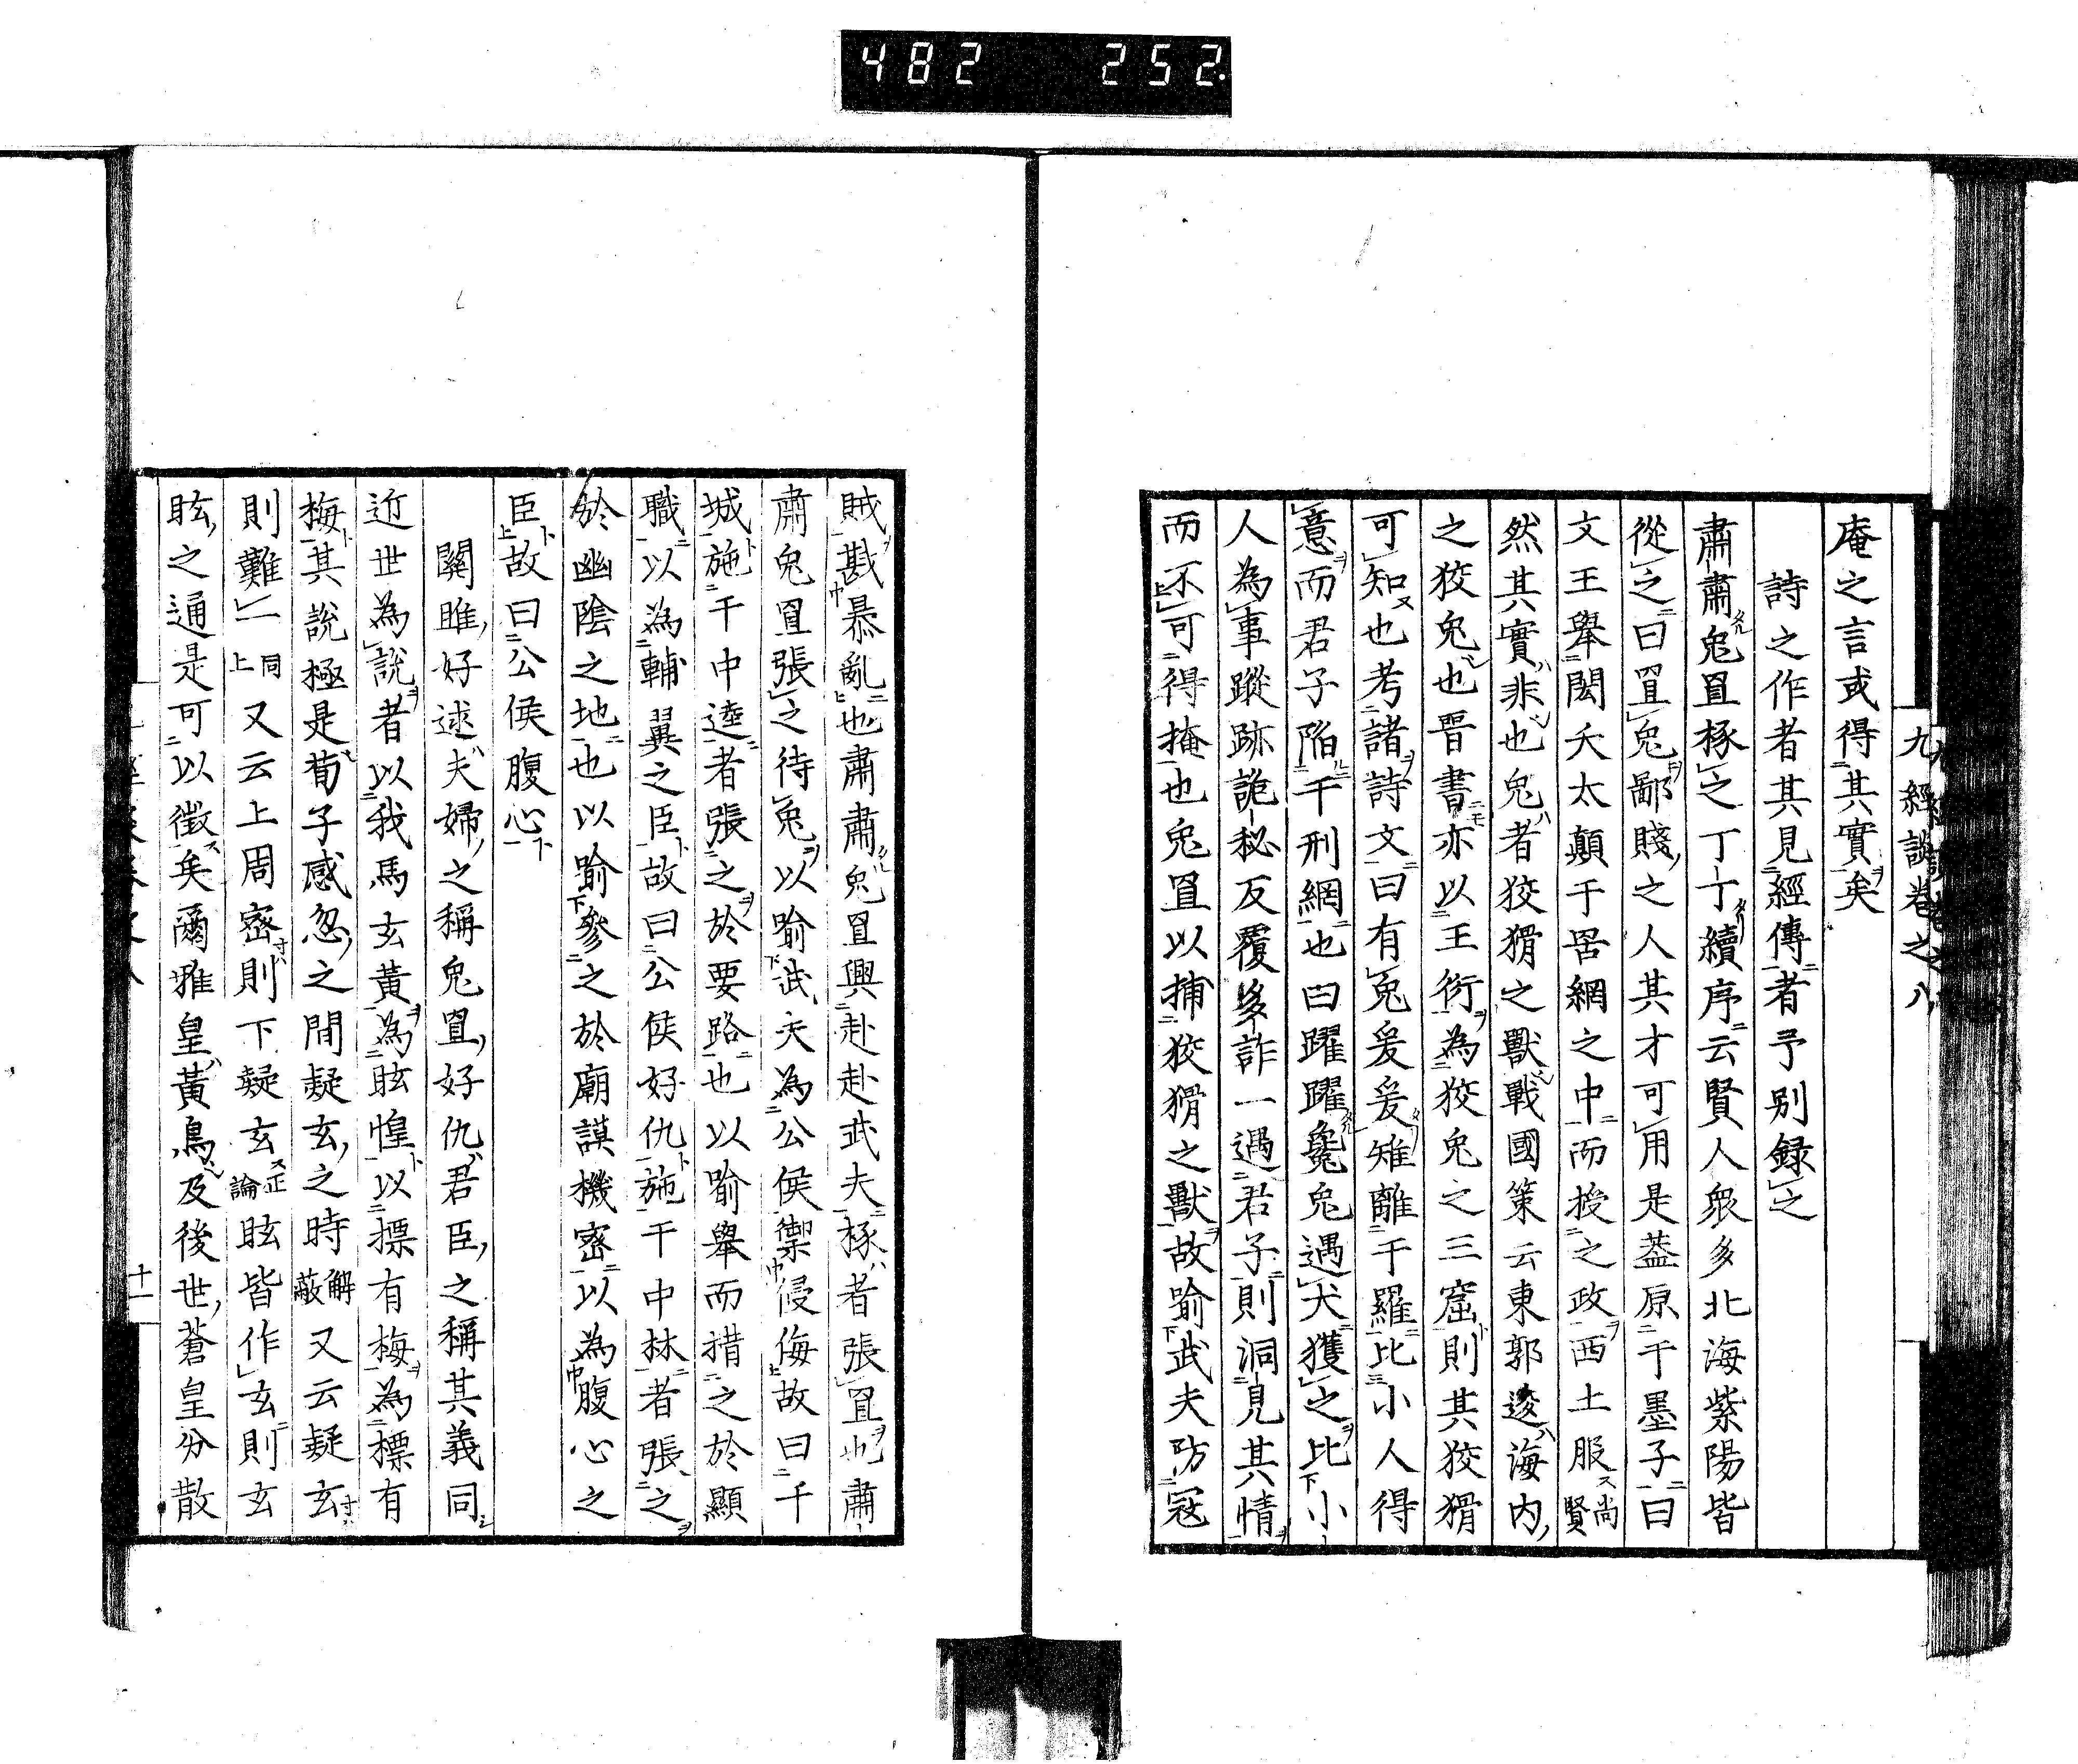 482 252
九經談卷之八
庵之言或得其實矣
詩之作者其見經傳者予別録之
肅肅兔罝椓之丁丁續序云賢人衆多北海紫陽皆
從之曰罝兔鄙賤之人其才可用是蓋原于墨子曰
文王舉閎夭太顛于罟網之中而授之政西土服尚賢
然其實非也兔者狡猾之獸戰國策云東郭逡海内
之狡兔也晉書亦以王衍為狡兔之三窟則其狡猾
可知也考諸詩文曰有兔爰爰雉離于羅比小人得
意而君子陥于刑網也曰躍躍毚兔遇犬獲之比小
人為事蹤跡詭秘反覆多詐一遇君子則洞見其情
而不可得掩也兔罝以捕狡猾之獸故喻武夫防寇
賊戡暴亂也肅肅兔罝興赳赳武夫椓者張罝也肅
肅兔罝張之待兔以喻武夫為公侯禦侵侮故曰干
城施于中逵者張之於要路也以喻舉而措之於顯
職以為輔翼之臣故曰公侯好仇施于中林者張之
於幽陰之地也以喻參之於廟謨機密以為腹心之
臣故曰公侯腹心
關雎好逑夫婦之稱兔罝好仇君臣之稱其義同
近世為説者以我馬玄黃為眩惶以摽有梅為標有
梅其説極是荀子感忽之間疑玄之時解蔽又云疑玄
則難一同上又云上周密則下疑玄正論眩皆作玄則玄
眩之通是可以徴矣爾雅皇黃鳥及後世蒼皇分散
十一